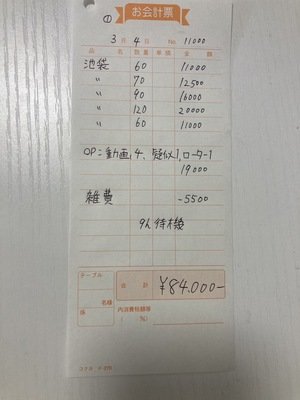 ①
お会計票
3月4日 No. 11000
品名 数量 単価 金額
池袋 60 11000
〃 70 12500
〃 90 16000
〃 120 20000
〃 60 11000
OP:動画,4、疑似1,ローター1
19000
雑費 -5500
9h 待機
テーブル
名様
係
合計 ¥84,000-
内消費税額等
( %)